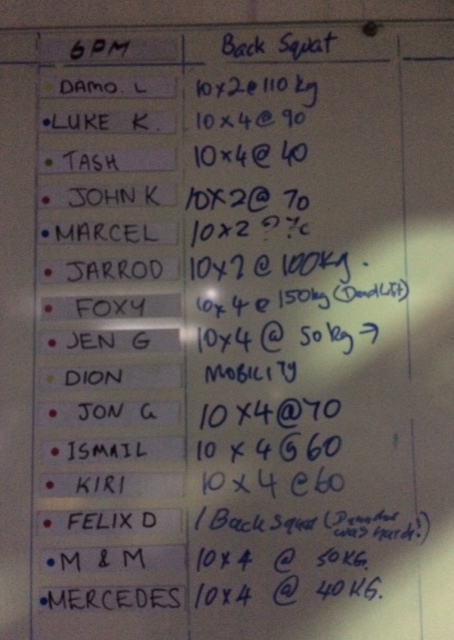 6PM Back Squat
DAMO. L 10x2@110 kg
LUKE K. 10x4@90
TASH 10x4@40
JOHN K 10x2@ 70
MARCEL 10x2
JARROD 10x2 @ 100kg.
FOXY 10x4@ 150kg (Deadlift)
JEN G 10x4 @ 50kg →
DION MOBILITY
JON G 10x4@70
ISMAIL 10 x 4@60
KIRI 10 x 4 @60
FELIX D 1 Back Squat ( was hard!)
M & M 10x4 @ 50KG.
MERCEDES 10x4 @ 40KG.